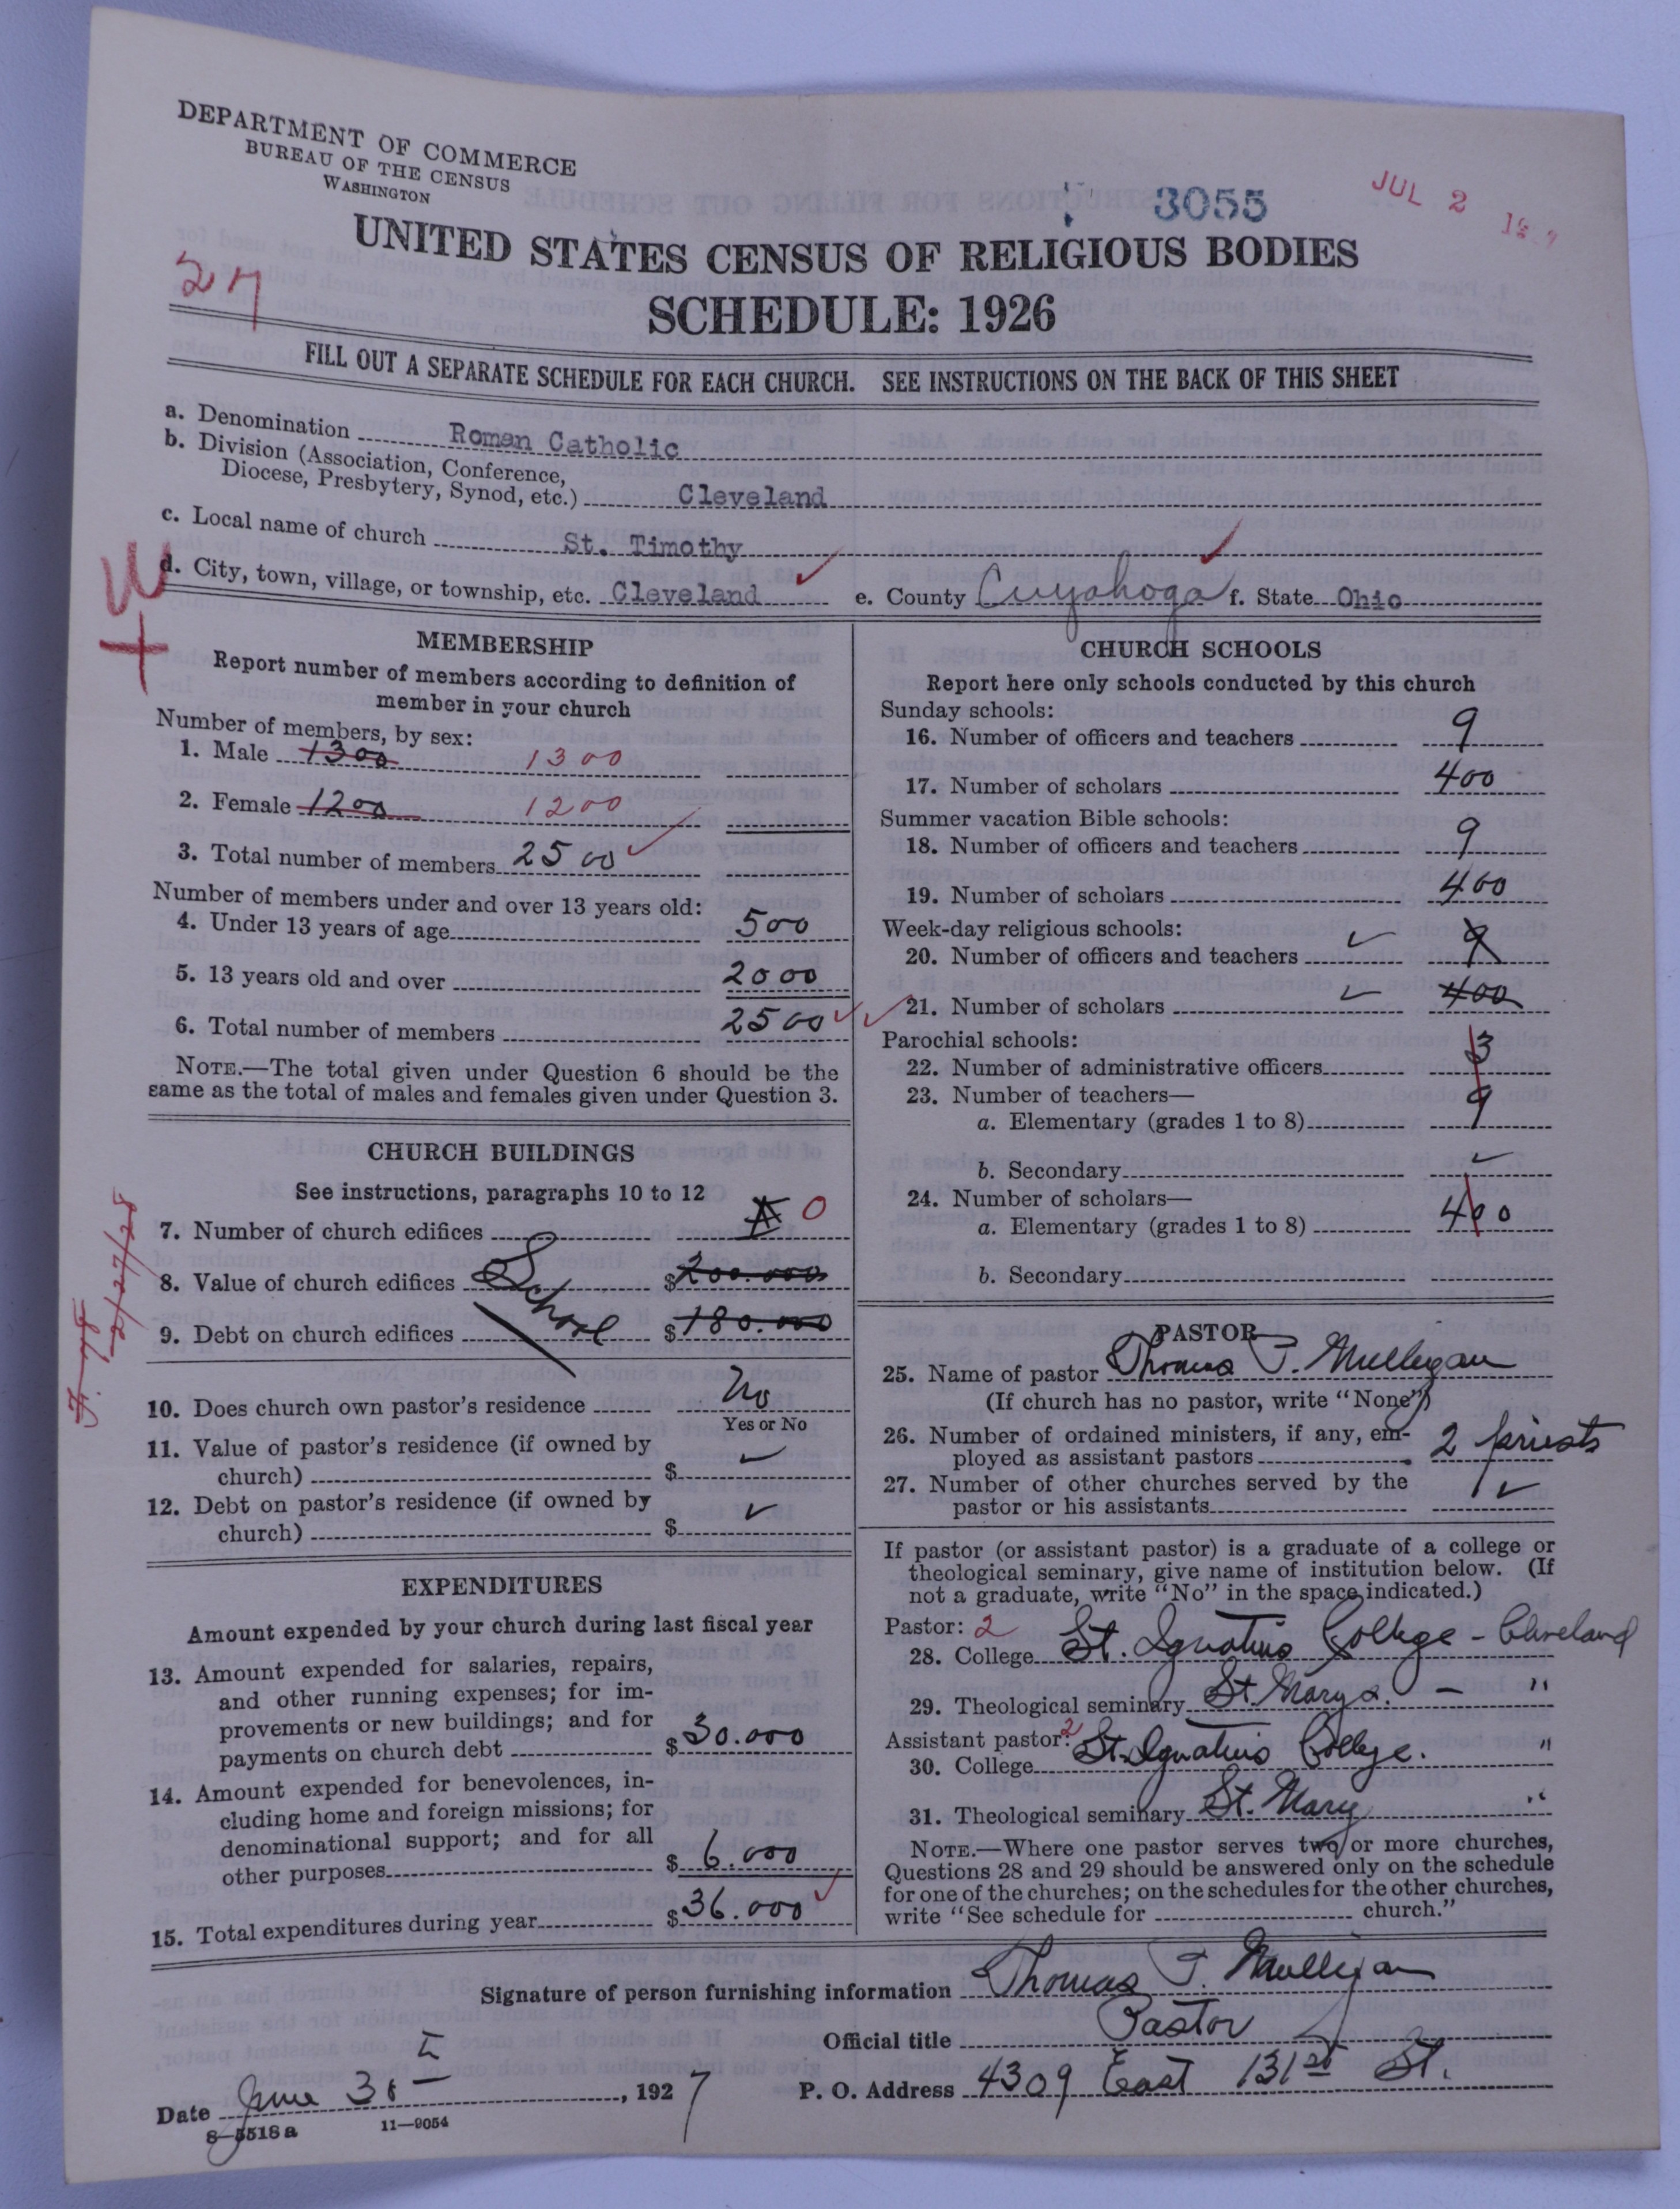 DEPARTMENT OF COMMERCE
BUREAU OF THE CENSUS
WASHINGTON
3055
JUL 2
UNITED STATES CENSUS OF RELIGIOUS BODIES
27
SCHEDULE: 1926
FILL OUT A SEPARATE SCHEDULE FOR EACH CHURCH. SEE INSTRUCTIONS ON THE BACK OF THIS SHEET
a. Denomination Roman Catholic
b. Division (Association, Conference,
Diocese, Presbytery, Synod, etc.) Cleveland
c. Local name of church St. Timothy
d. City, town, village, or township, etc. Cleveland e. County Cuyahoga f. State Ohio
MEMBERSHIP
Report number of members according to definition of
member in your church
Number of members, by sex:
1. Male 1300 1300
2. Female 1200 1200
3. Total number of members 2500
Number of members under and over 13 years old:
4. Under 13 years of age 500
5. 13 years old and over 2000
6. Total number of members 2500
NOTE.—The total given under Question 6 should be the
same as the total of males and females given under Question 3.
CHURCH BUILDINGS
See instructions, paragraphs 10 to 12
7. Number of church edifices 0
8. Value of church edifices School $200.000
9. Debt on church edifices $180.000
10. Does church own pastor's residence No
Yes or No
11. Value of pastor's residence (if owned by
church) $
12. Debt on pastor's residence (if owned by
church) $
EXPENDITURES
Amount expended by your church during last fiscal year
13. Amount expended for salaries, repairs,
and other running expenses; for im-
provements or new buildings; and for
payments on church debt $30.000
14. Amount expended for benevolences, in-
cluding home and foreign missions; for
denominational support; and for all
other purposes $6.000
15. Total expenditures during year $36.000
CHURCH SCHOOLS
Report here only schools conducted by this church
Sunday schools:
16. Number of officers and teachers 9
17. Number of scholars 400
Summer vacation Bible schools:
18. Number of officers and teachers 9
19. Number of scholars 400
Week-day religious schools:
20. Number of officers and teachers 9
21. Number of scholars 400
Parochial schools:
22. Number of administrative officers 3
23. Number of teachers—
a. Elementary (grades 1 to 8) 9
b. Secondary
24. Number of scholars—
a. Elementary (grades 1 to 8) 400
b. Secondary
PASTOR
25. Name of pastor Thomas P. Mulligan
(If church has no pastor, write "None")
26. Number of ordained ministers, if any, em-
ployed as assistant pastors 2 priests
27. Number of other churches served by the
pastor or his assistants
If pastor (or assistant pastor) is a graduate of a college or
theological seminary, give name of institution below. (If
not a graduate, write "No" in the space indicated.)
Pastor: 2
28. College St. Ignatius College - Cleveland
29. Theological seminary St. Marys. - "
Assistant pastor: 2
30. College St. Ignatius College. "
31. Theological seminary St. Mary "
NOTE.—Where one pastor serves two or more churches,
Questions 28 and 29 should be answered only on the schedule
for one of the churches; on the schedules for the other churches,
write "See schedule for church."
Signature of person furnishing information Thomas P. Mulligan
Official title Pastor
Date June 30, 1927 P. O. Address 4309 East 131st St.
8-5518a 11-9054